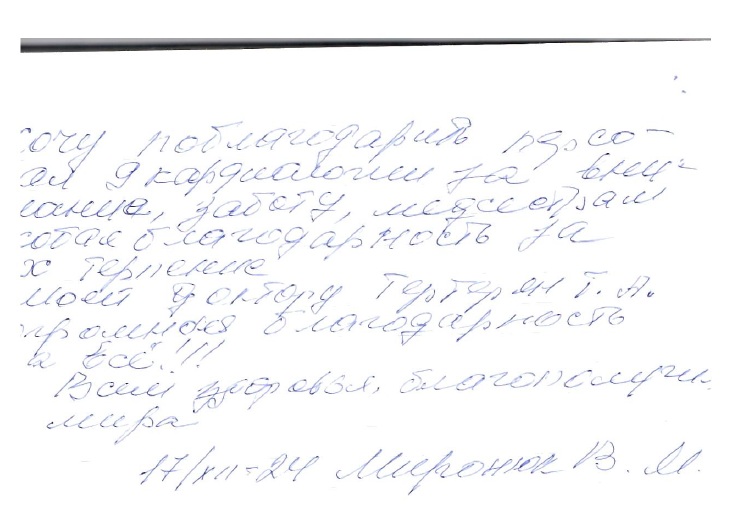 очу поблагодарить персо-
ал 9 кардиологии за вни-
ание, заботу, медсестрам
собая благодарность за
х терпение
моей доктору Тертерян Т. А.
громная благодарность
а всё!!!
Всем здоровья, благополучи
мира
17/XII-24 Миронюк В. М.